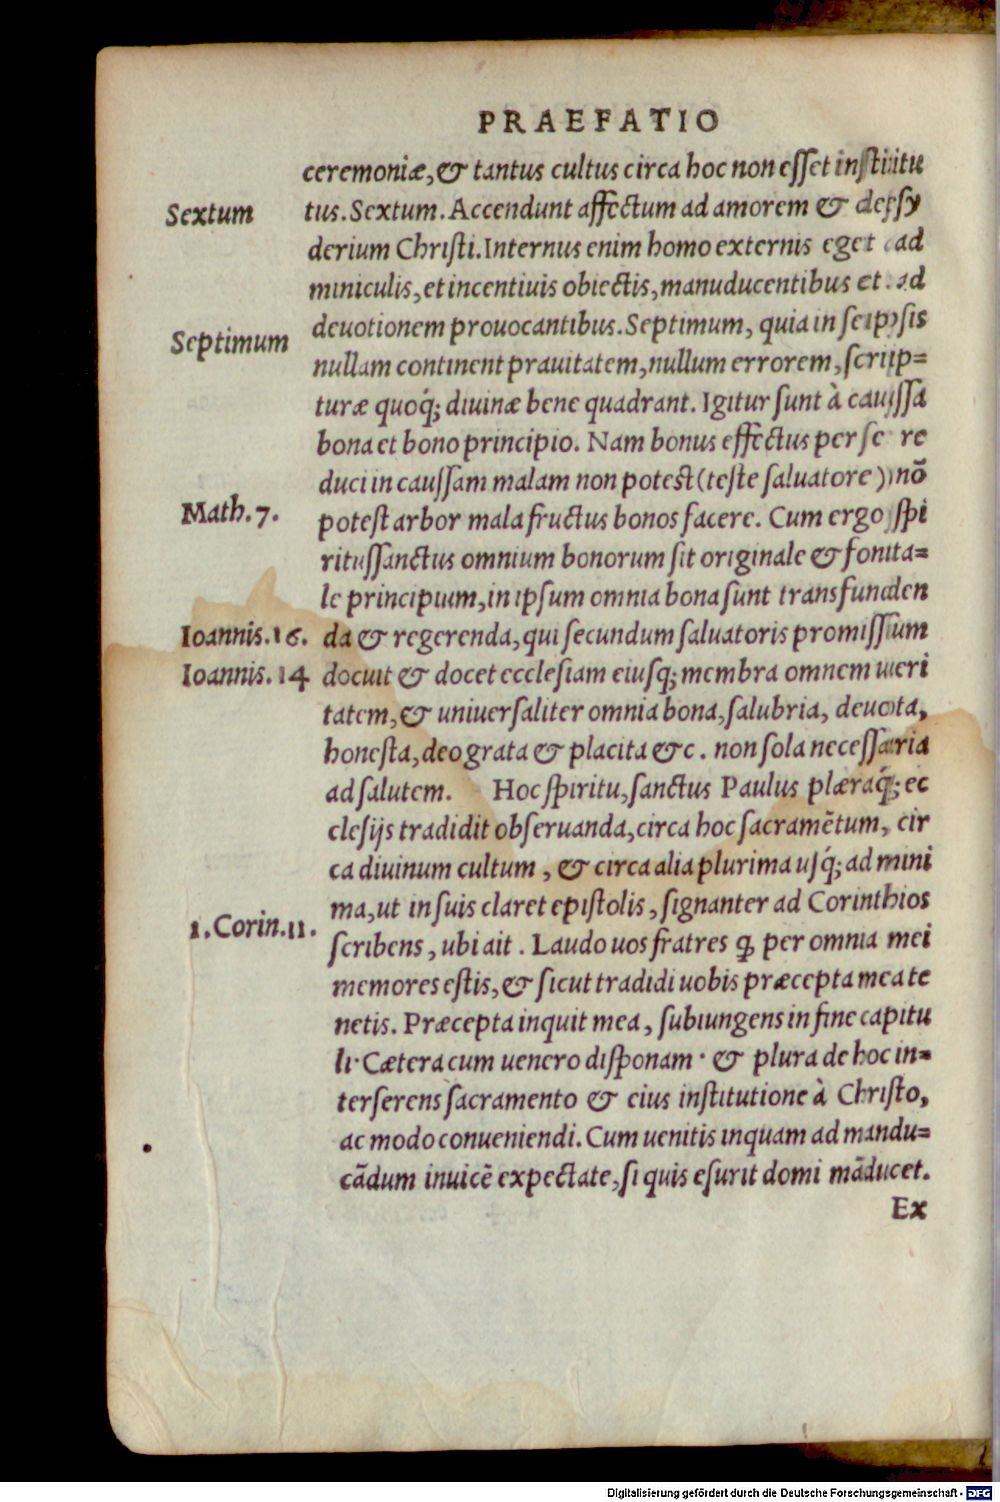 PRAEFATIO
ceremoniæ, & tantus cultus circa hoc non esset institu
Sextum
tus. Sextum. Accendunt affectum ad amorem & desy
derium Christi. Internus enim homo externis eget ad
miniculis, et incentiuis obiectis, manuducentibus et ad
Septimum
deuotionem prouocantibus. Septimum, quia in seipsis
nullam continent prauitatem, nullum errorem, scrip=
turæ quoq́; diuinæ bene quadrant. Igitur sunt à caussa
bona et bono principio. Nam bonus effectus per se re
duci in caussam malam non potest (teste saluatore) nō
Math. 7.
potest arbor mala fructus bonos facere. Cum ergo spi
ritussanctus omnium bonorum sit originale & fonta=
le principium, in ipsum omnia bona sunt transfunden
Ioannis. 16.
da & regerenda, qui secundum saluatoris promissum
Ioannis. 14
docuit & docet ecclesiam eiusq; membra omnem ueri
tatem, & uniuersaliter omnia bona, salubria, deuota,
honesta, deo grata & placita &c. non sola necessaria
ad salutem. Hoc spiritu, sanctus Paulus plæraq́; ec
clesijs tradidit obseruanda, circa hoc sacramētum, cir
ca diuinum cultum, & circa alia plurima usq́; ad mini
ma, ut in suis claret epistolis, signanter ad Corinthios
1. Corin. 11.
scribens, ubi ait. Laudo uos fratres ꝙ per omnia mei
memores estis, & sicut tradidi uobis præcepta mea te
netis. Præcepta inquit mea, subiungens in fine capitu
li· Cætera cum uenero disponam· & plura de hoc in=
terserens sacramento & eius institutione à Christo,
ac modo conueniendi. Cum uenitis inquam ad mandu=
cādum inuicē expectate, si quis esurit domi māducet.
Ex
Digitalisierung gefördert durch die Deutsche Forschungsgemeinschaft - DFG